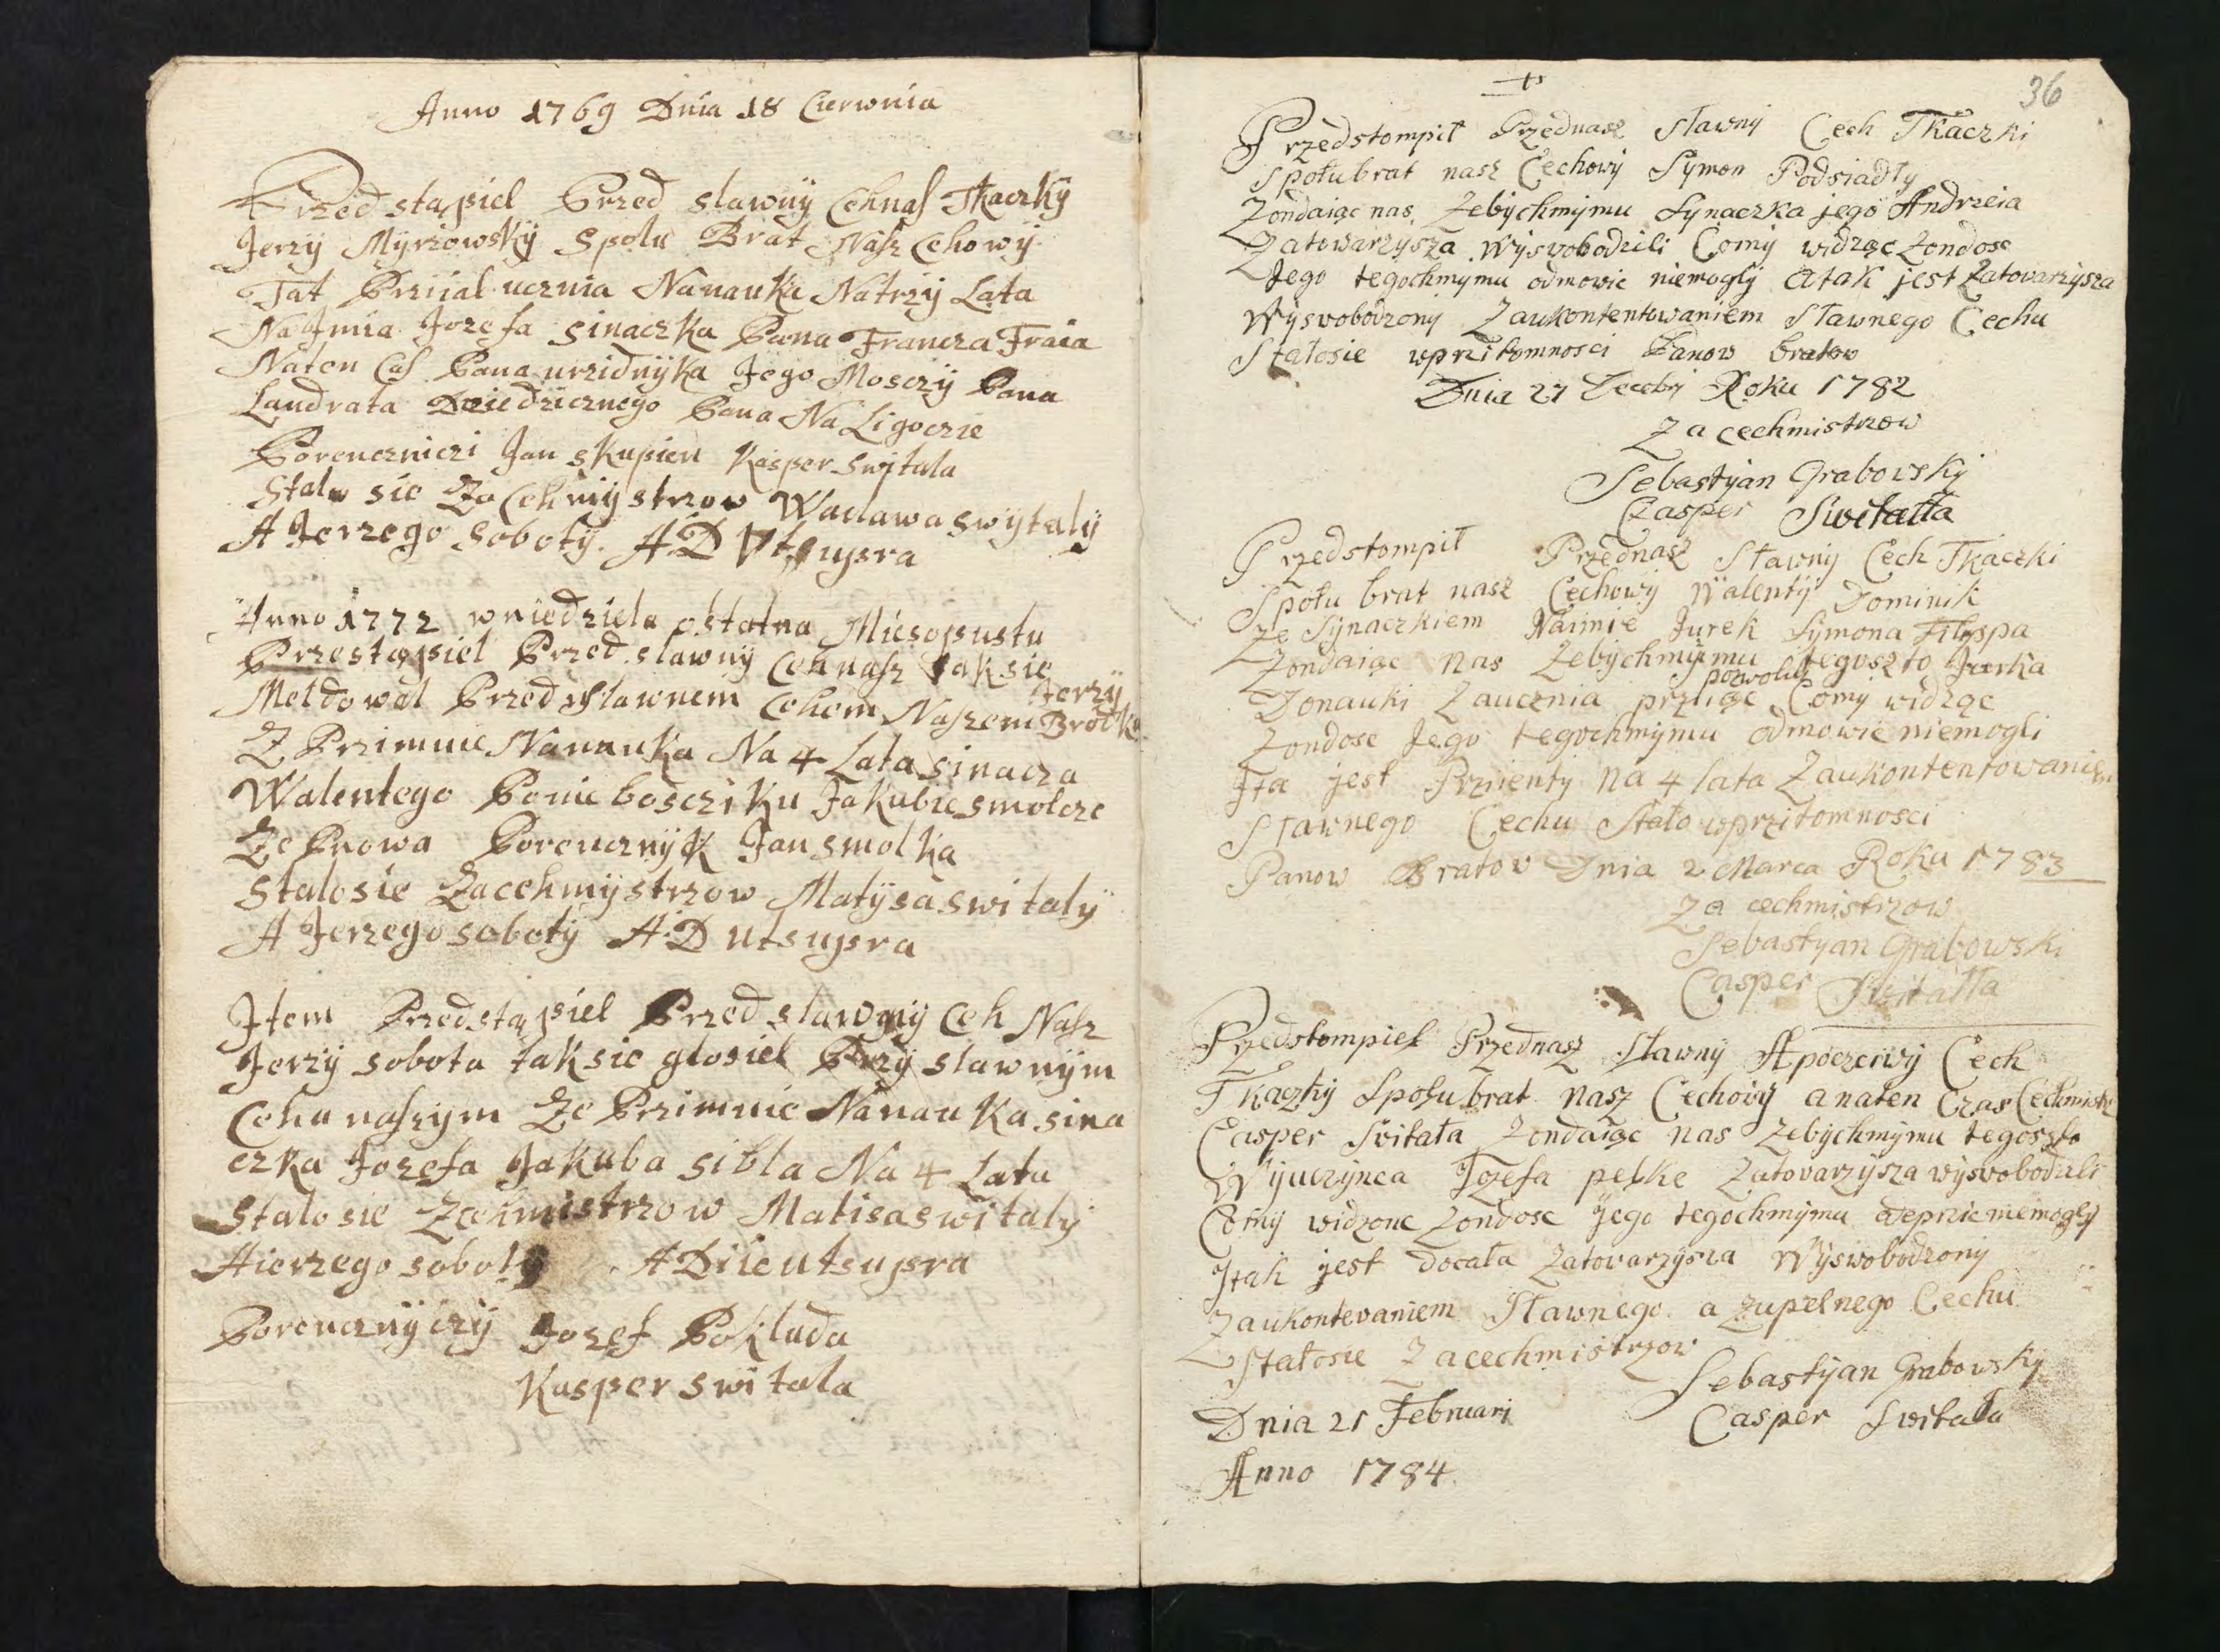 Anno 1769 Dnia 18 Cierwnia
Przed stąpiel Przed slawnÿ Cehnas Tkaczkÿ
Jerzÿ Mÿrzowskÿ Spolu Brat Nasz Cehowÿ
Tat Prziial ucznia Nanauku Natrzÿ Lata
Na Jmia Jozefa Sinaczka Pana Francza Fraia
Naten Cas Pana urzidnÿka Jego Mosczÿ Pana
Landrata Dziedzicznego Pana Na Ligoczie
Porenczniczi Jan Skupien Kasper Switala
Stalo sie Za Cehmÿstrzow Waclawa swÿtalÿ
A Jerzego Sobotÿ. A D Utsupra
Anno 1772 wniedziela ostatna Miesopustu
Przestąpiel Przed slawnÿ Cehnasz tak sie
Meldowal Przed slawnem Cehem Naszem Jerzÿ Brotke
Z Przimuie Nanauka Na 4 Lata sinacza
Walentego Ponieboscziku Jakubie smolcze
Ze Pnowa Porencznÿk Jan smolka
Stalosie Zacehmÿstrzow Matÿsa switalÿ
A Jerzego sobotÿ A D utsupra
Jtem Przedstąpiel Przed slawnÿ Ceh Nasz
Jerzÿ sobota taksie glosiel Przÿ slawnÿm
Cehu naszym Ze Przimuie Nanauka sina
czka Jozefa Jakuba sibla Na 4 Lata
Stalosie Zcehmistrzow Matisa switalÿ
Aierzego sobotÿ A Diie utsupra
Porencznÿczÿ Jozef Pokluda
Kasper switala
36
Przedstompił Przednasz Sławny Cech Tkaczki
Społubrat nasz Cechowy Symon Podsiadły
Zondaiąc nas Zebychmymu Synaczka jego Andrzeia
Zatowarzysza Wyswobodzili Comy widząc Zondosc
Jego tegochmymu odmowic niemogly Atak jest Zatowarzysza
Wyswobodzony Zaukontentowaniem Sławnego Cechu
Stałosie wprzitomnosci Panow bratow
Dnia 27 Decebry Roku 1782
Za cechmistrzow
Sebastyan Grabovsky
Casper Switałła
Przedstompił Przednasz Sławny Cech Tkaczki
Społu brat nasz Cechowy Walenty Dominik
Ze Synaczkiem Naimie Jurek Symona Filipspa
Zondaiąc Nas Zebychmymu tegoszto Jurka
pozwolily
Donauki Zaucznia prziiąc Comy widząc
Zondosc Jego tegochmymu odmowic niemogli
Jta jest Prziienty na 4 lata Zaukontentowaniem
Sławnego Cechu Stało wprzitomnosci
Panow Bratow Dnia 2 Marca Roku 1783
Za cechmistrzow
Sebastyan Grabowski
Casper Switałła
Przedstompieł Przednasz Sławny Apoczciwy Cech
Tkaczky Społubrat nasz Cechowy anaten Czas Cechmistr
Casper Switała Zondaiąc nas Zebychmymu tegoszto
Wyuczynca Jozefa pełke Zatovarzysza wyswobodzali
Comy widzonc Zondosc jego tegochmymu odeprzic niemogly
Jtak jest docała Zatovarzysza Wyswobodzony
Zaukontevaniem Sławnego a zupełnego Cechu
Stałosie Zacechmistrzow
Sebastyan Grabowsky
Dnia 21 Februari
Casper Switała
Anno 1784